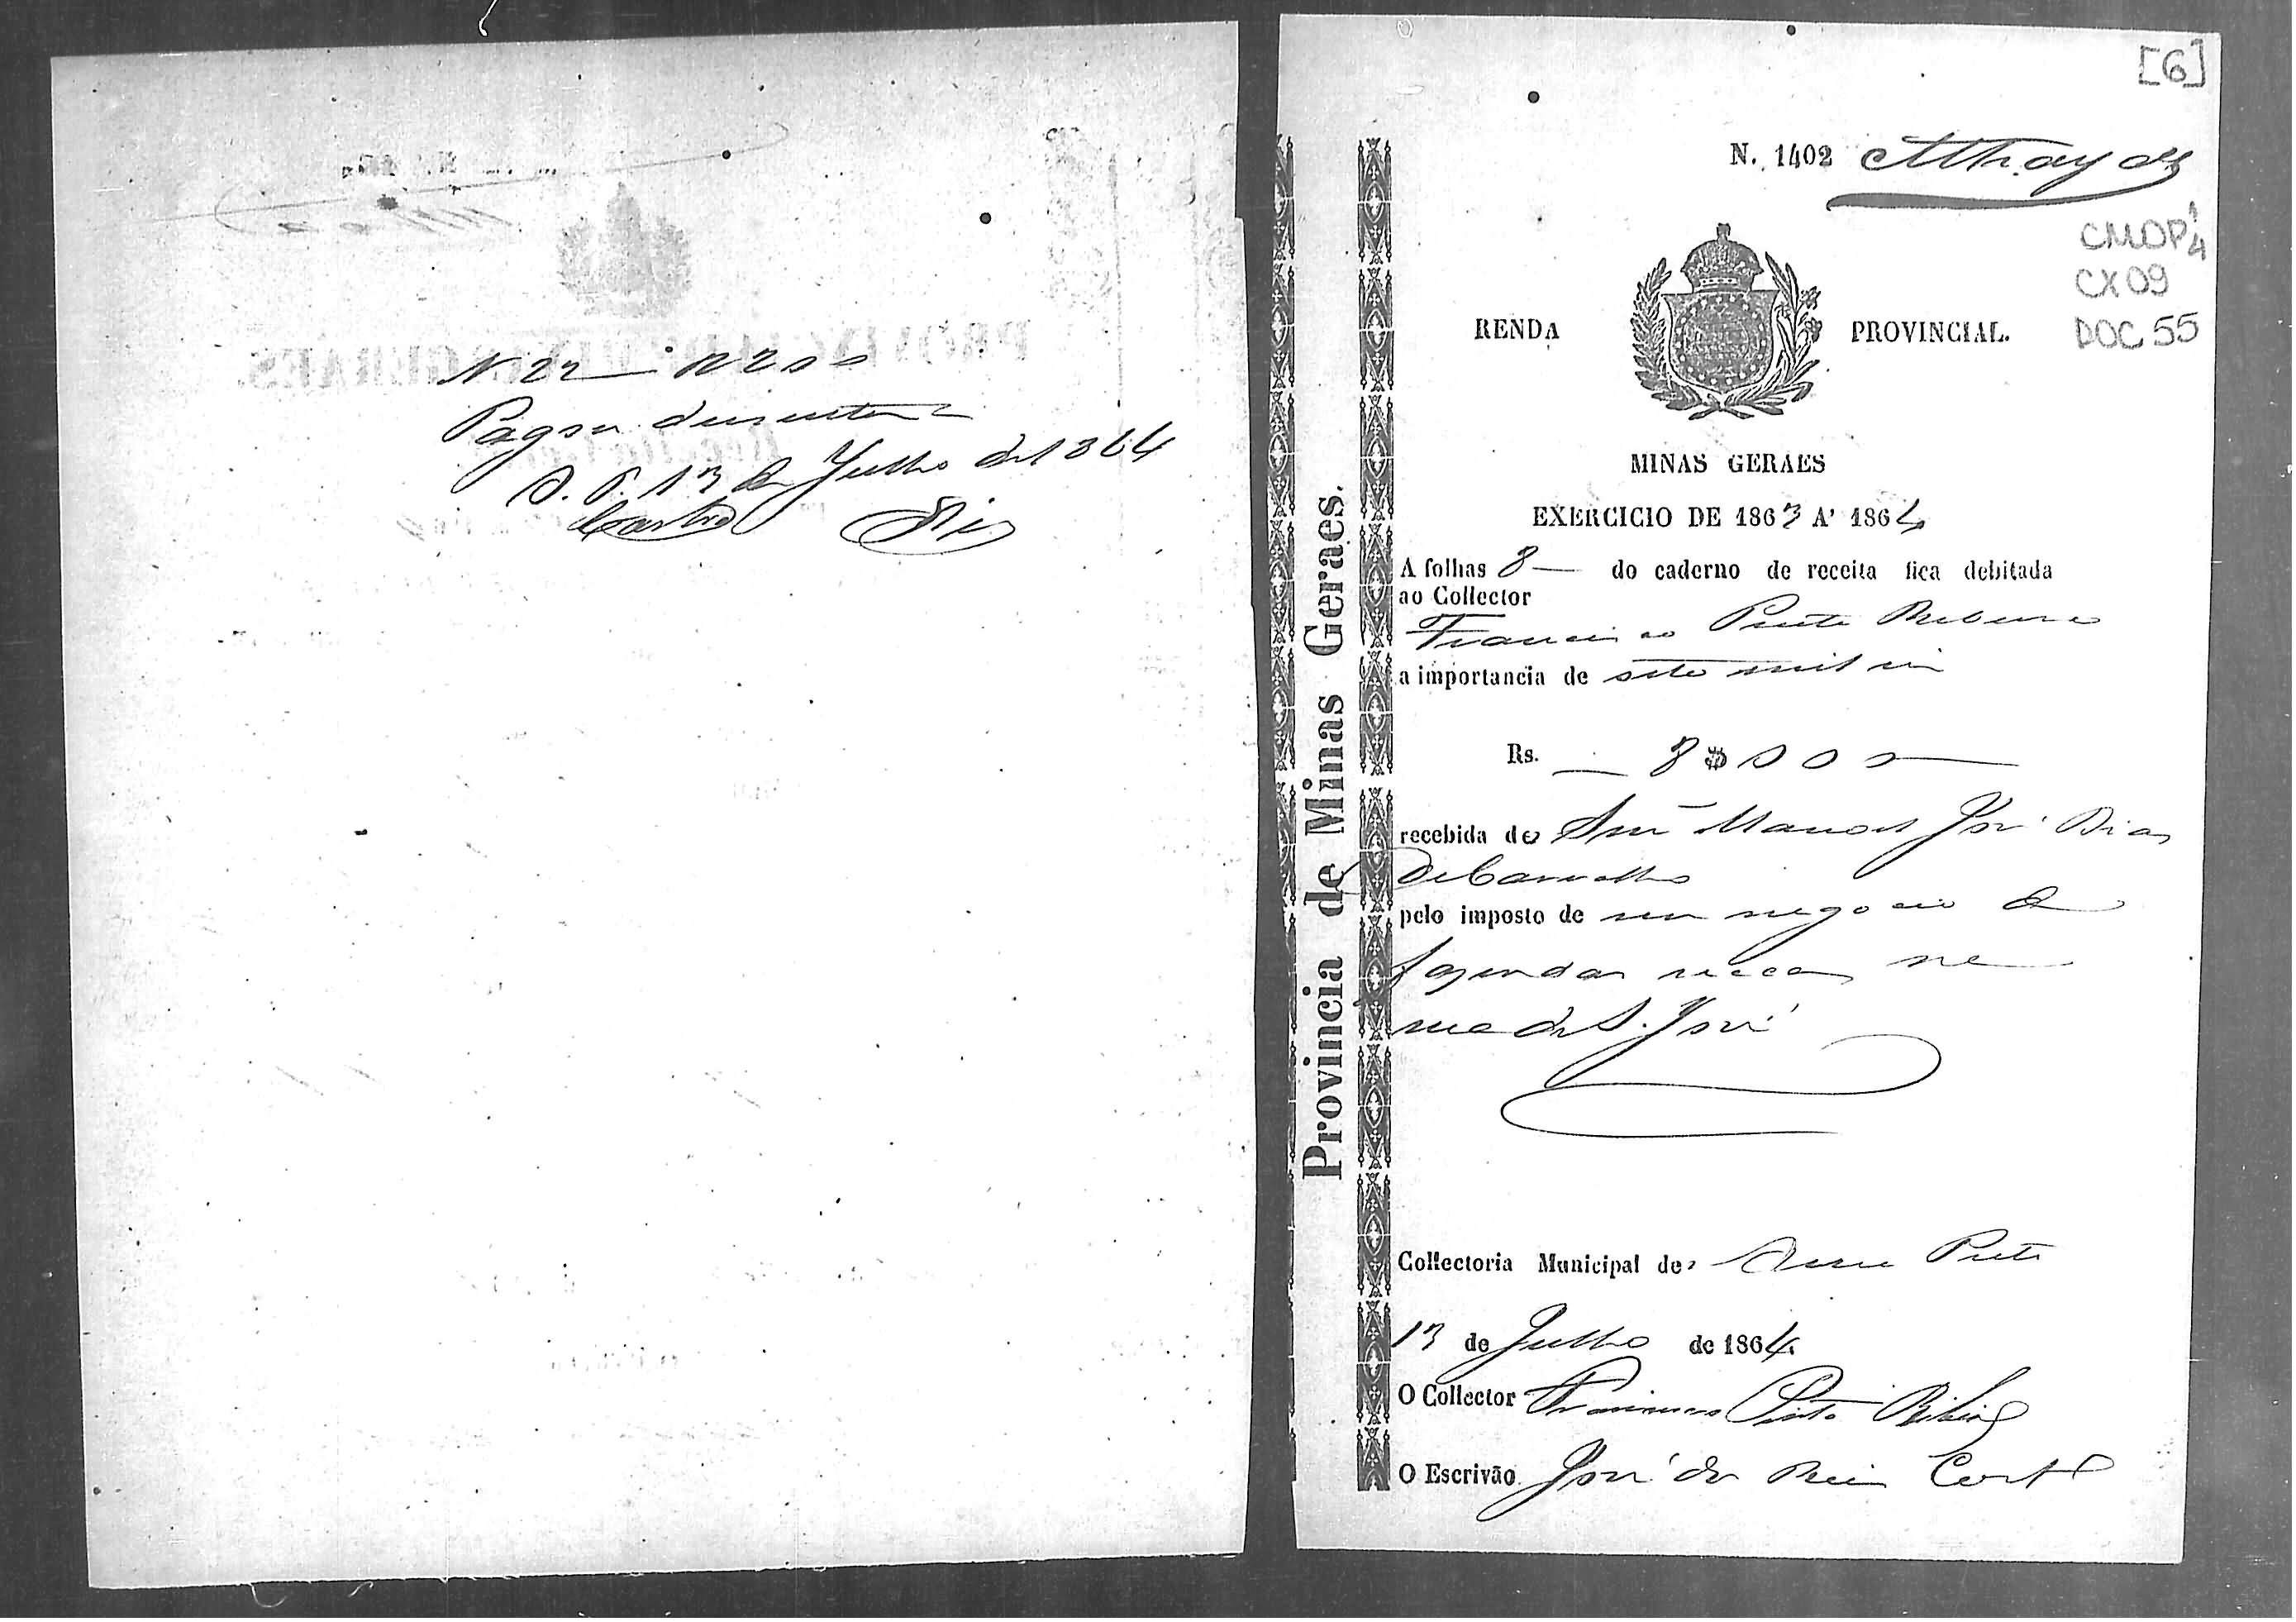 N 22 — R 200
Pagou duzentos
O. P. 13 de Julho de 1864
Castro
[6]
N. 1402 Athayde
CMOP 1/4
CX 09
DOC 55
RENDA PROVINCIAL.
MINAS GERAES
EXERCICIO DE 1863 A' 1864
A folhas 8 — do caderno de receita fica debitada
ao Collector
Francisco Pinto Ribeiro
a importancia de oito mil reis
Rs. — 8$000 —
recebida de Snr Manoel José Dias
de Carvalho
pelo imposto de seu negocio de
fazendas seccas na
rua de S. José
Collectoria Municipal de Ouro Preto
13 de Julho de 1864
O Collector Francisco Pinto Ribeiro
O Escrivão José dos Reis
Provincia de Minas Geraes.